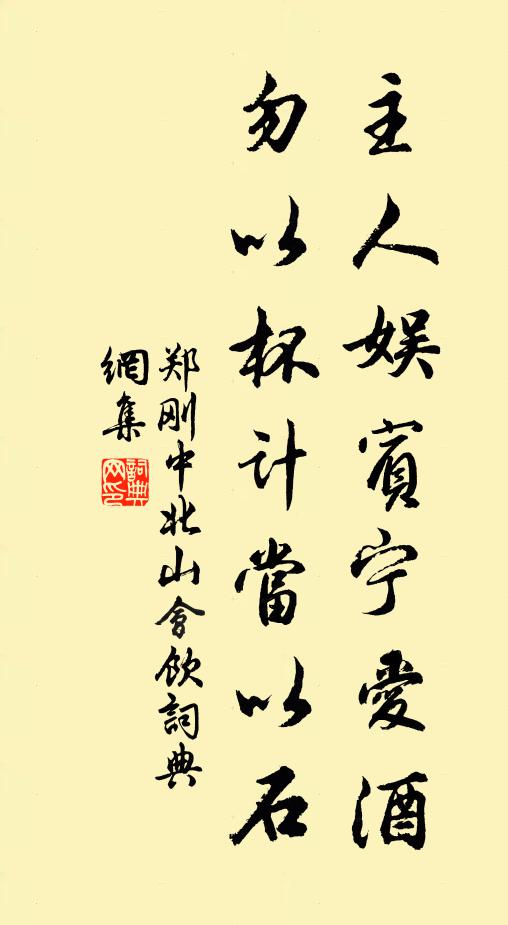 主人娱賓宁愛酒
勿以杯計當以石
郑刚中北山會飲詞典
網集
詞典網印